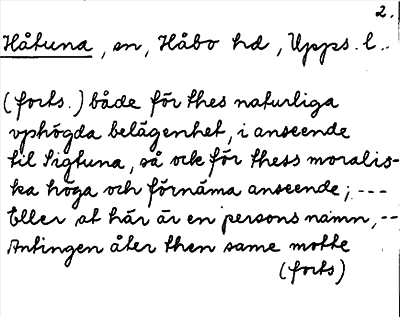 2.
Håtuna, sn, Håbo hd, Upps. l..
(forts.) både för thes naturliga
vphögda belägenhet, i anseende
til Sigtuna, så ock för thess moralis-
ka höga och förnäma anseende; ---
Eller at här är en persons namn, --
Antingen åter then same motte
(forts)